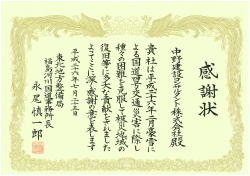 感謝状
中野建設コンサルタント株式会社殿
貴社は平成二十六年二月豪雪に
よる国道四号交通災害に際し
種々の困難を克服して被災地域の
復旧等に多大な貢献をされました
よってここに深く感謝の意を表します
平成二十六年七月二十五日
東北地方整備局
福島河川国道事務所長
永尾慎一郎